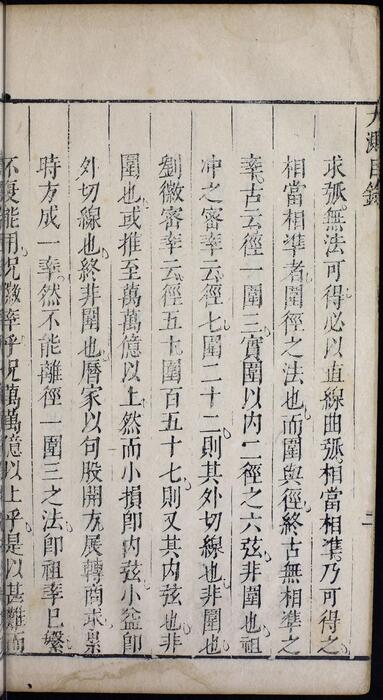 大測目錄
二
求弧無法可得必以直線曲弧相當相準乃可得之
相當相準者圍徑之法也而圍與徑終古無相準之
率古云徑一圍三實圍以內二徑之六弦非圍也祖
冲之密率云徑七圍二十二則其外切線也非圍也
劉徽密率云徑五十圍百五十七則又其內弦也非
圍也或推至萬萬億以上然而小損卽內弦小益卽
外切線也終非圍也曆家以句股開方展轉商求累
時方成一率然不能離徑一圍三之法卽祖率已繁
不復能用况徽率乎况萬萬億以上乎是以甚難而